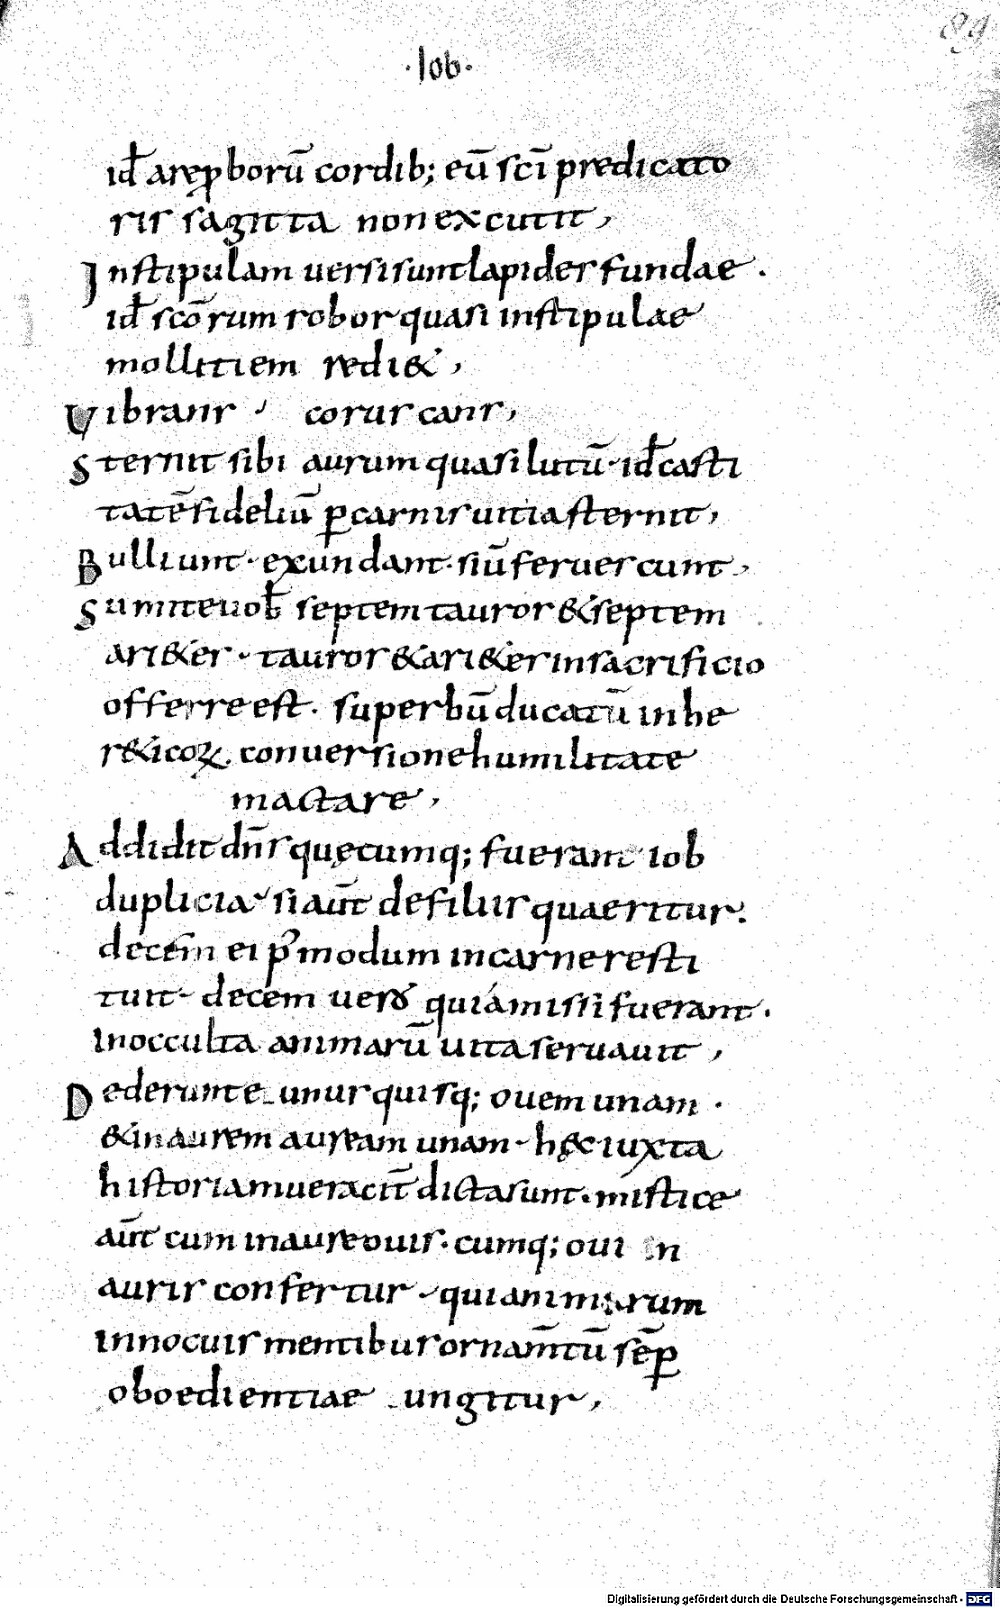 89
·Iob·
id̄ a rep̱borū cordib; eū sc̄i predicato
ris sagitta non excutit,
Instipulam versi sunt lapides fundae .
id̄ scōrum robor quasi instipulae
mollitiem redi&,
Vibrans , coruscans,
Sternit sibi aurum quasi lutū· id̄ casti
tatē fideliū ꝑ carnis uitia sternit,
Bulliunt · exundant · siū feruescunt,
Sumite uob̄ septem tauros & septem
ari&es · tauros & ari&es in sacrificio
offerre est · superbū ducatū in he
r&icoꝝ · conuersione humilitate
mactare,
Addidit dn̄s quęcumq; fuerant iob
duplicia · si aūt de filiis quaeritur.
decem ei p̄modum in carne resti
tuit · decem uero qui amissi fuerant ·
in occulta animarū uita seruauit ,
Dederunt unusquisq; ouem unam ·
& in aurem auream unam · hęc iuxta
historiam ueracit̄ dicta sunt · mistice
aūt cum inaure ouis · cumq; oui in
auris confertur · qui animarum
innocuis mentibus ornam̄tū sēꝑ
oboedientiae ungitur,
Digitalisierung gefördert durch die Deutsche Forschungsgemeinschaft - DFG